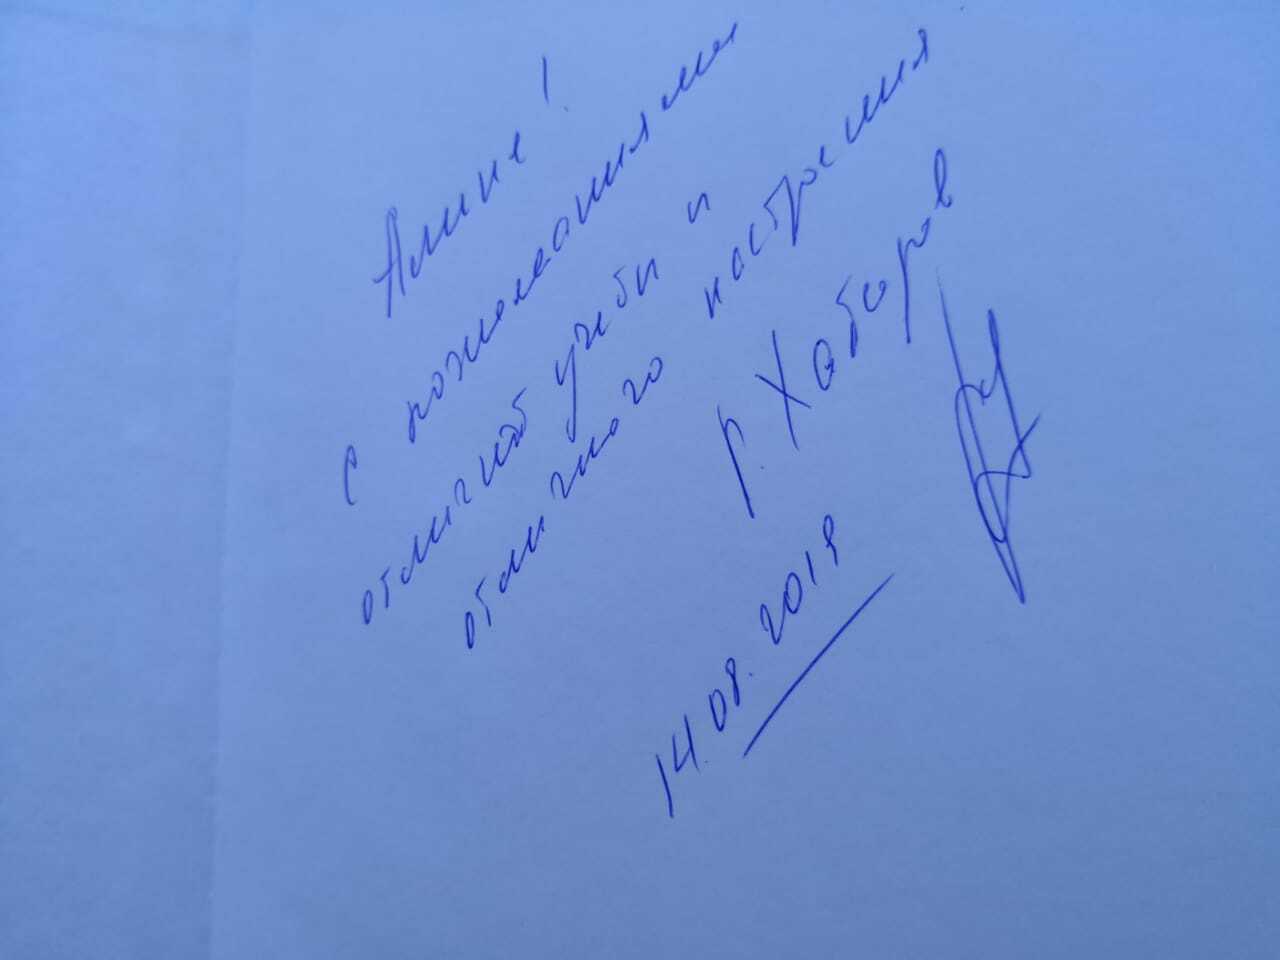 Алине!
с пожеланиями
отличной учебы и
отличного настроения
Р. Хабаров
14.08.2019